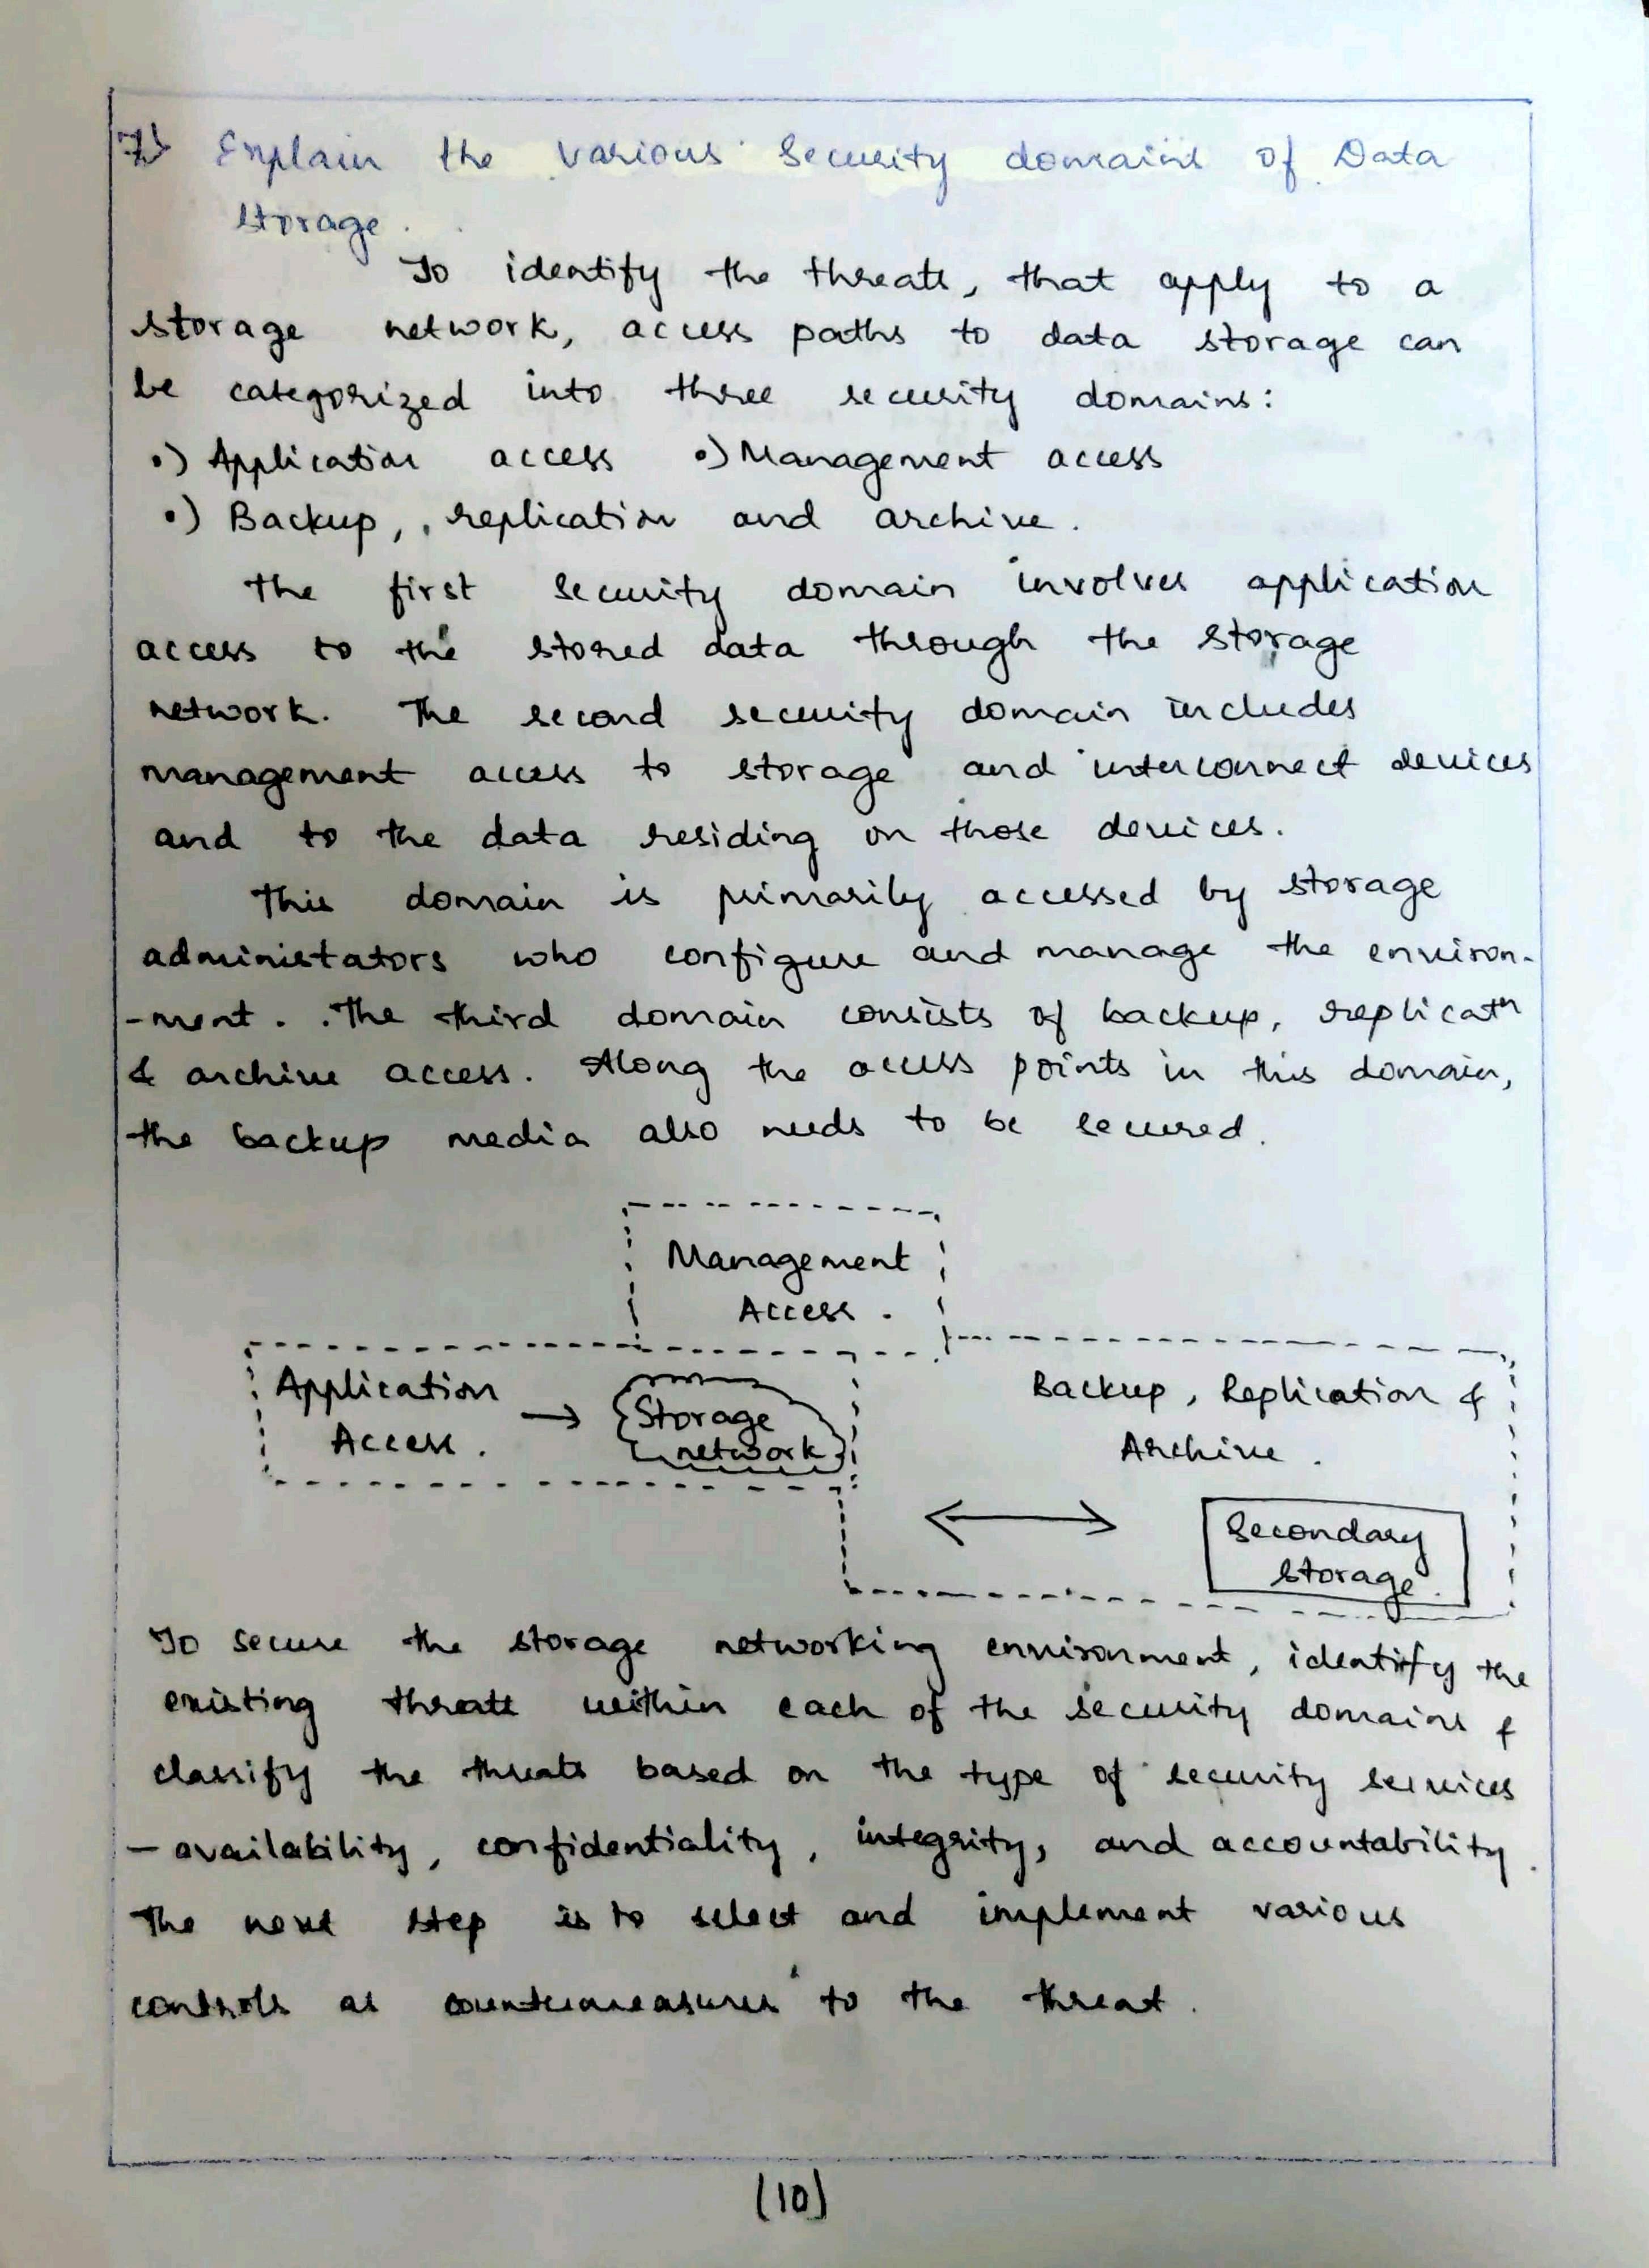 7) Explain the various Security domains of Data
storage.
To identify the threats, that apply to a
storage network, access paths to data storage can
be categorized into three security domains:
•) Application access •) Management access
•) Backup, replication and archive.
The first security domain involves application
access to the stored data through the storage
network. The second security domain includes
management access to storage and interconnect devices
and to the data residing on those devices.
This domain is primarily accessed by storage
administators who configure and manage the environ-
-ment. The third domain consists of backup, replicatn
& archive access. Along the access points in this domain,
the backup media also needs to be secured.
Management
Access.
Application
Access.
→
Storage
network
Backup, Replication &
Archive.
Secondary
storage.
To secure the storage networking environment, identify the
existing threats within each of the security domains &
classify the threats based on the type of security services
- availability, confidentiality, integrity, and accountability.
The next step is to select and implement various
controls as countermeasures to the threat.
(10)